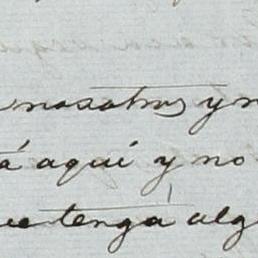 nosotros y n
á aquí y no
ue tenga alg